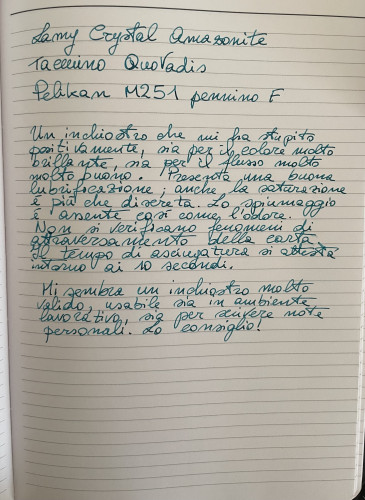 Lamy Crystal Amazonite
Taccuino QuoVadis
Pelikan M251 pennino F
Un inchiostro che mi ha stupito
positivamente, sia per il colore molto
brillante, sia per il flusso molto
molto buono. Presenta una buona
lubrificazione, anche la saturazione
è più che discreta. Lo spiumaggio
è assente così come l'odore.
Non si verificano fenomeni di
attraversamento della carta.
Il tempo di asciugatura si attesta
intorno ai 10 secondi.
Mi sembra un inchiostro molto
valido, usabile sia in ambiente
lavorativo, sia per scrivere note
personali. Lo consiglio!